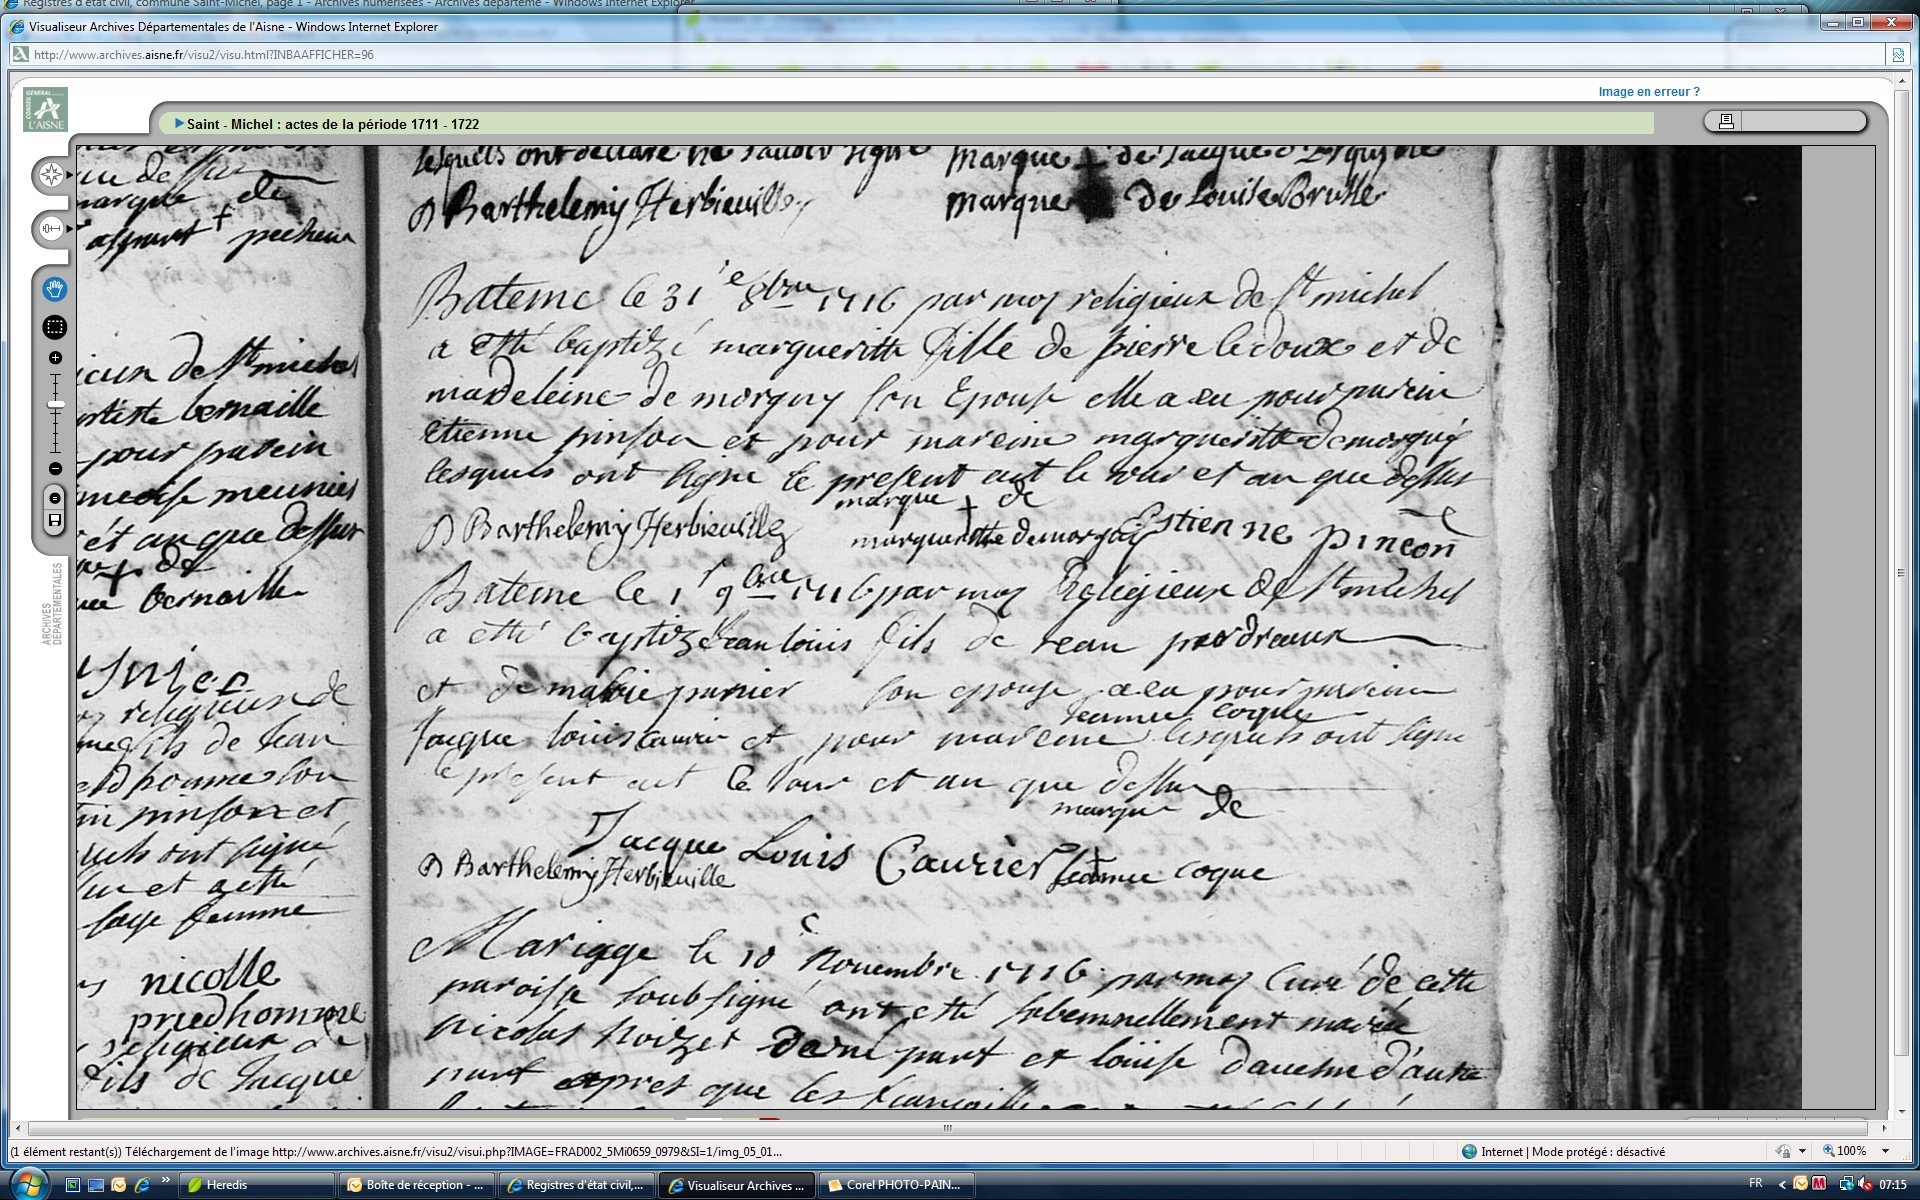 Registres d'état civil, commune Saint-Michel, page 1 - Archives numérisées - Archives département - Windows Internet Explorer
Visualiseur Archives Départementales de l'Aisne - Windows Internet Explorer
http://www.archives.aisne.fr/visu2/visu.html?INBAAFFICHER=96
Image en erreur ?
CONSEIL GÉNÉRAL
L'AISNE
Saint - Michel : actes de la période 1711 - 1722
ARCHIVES DÉPARTEMENTALES
marque de
pecheur
de St michel
bernaille
pour parein
meunier
et an que dessus
de
bernaille
religieux de
fils de Jean
pinson et
ont signé
et acté
sage femme
nicolle
prudhomme
religieux de
fils de Jacque
lesquels ont declaré ne savoir signé marque de Jacque
D Barthelemy Herbieuille marque de Louise Brulle
Bateme le 31e 8bre 1716 par moy religieux de St michel
a etté baptizé margueritte fille de pierre ledoux et de
madeleine de morguy son Epouse elle a eu pour parein
etienne pinson et pour mareine margueritte demorguy
lesquels ont signe le present act le iour et an que dessus
marque de
D Barthelemy Herbieuille margueritte demorguy Estienne pincon
Bateme le 1r 9bre 1716 par moy Religieux de St michel
a etté baptizé Jean louis fils de iean perdreaux
et de marie punier son epouse a eu pour parein
Jeanne coque
Jacque louis caurier et pour mareine lesquels ont signe
le present act le iour et an que dessus
marque de
Jacque Louis Caurier
D Barthelemy Herbieuille Jeanne coque
Mariage le 10e Nouembre 1716 par moy Curé de cette
paroisse soubsigné ont etté solemnellement marié
nicolas Noizet d'une part et loüise dauesne d'autre
part apres que les fiancailles
(1 élément restant(s)) Téléchargement de l'image http://www.archives.aisne.fr/visu2/visui.php?IMAGE=FRAD002_5Mi0659_0979&SI=1/img_05_01...
Internet | Mode protégé : désactivé
100%
Heredis
Boîte de réception - ...
Registres d'état civil,...
Visualiseur Archives ...
Corel PHOTO-PAIN...
FR
07:15